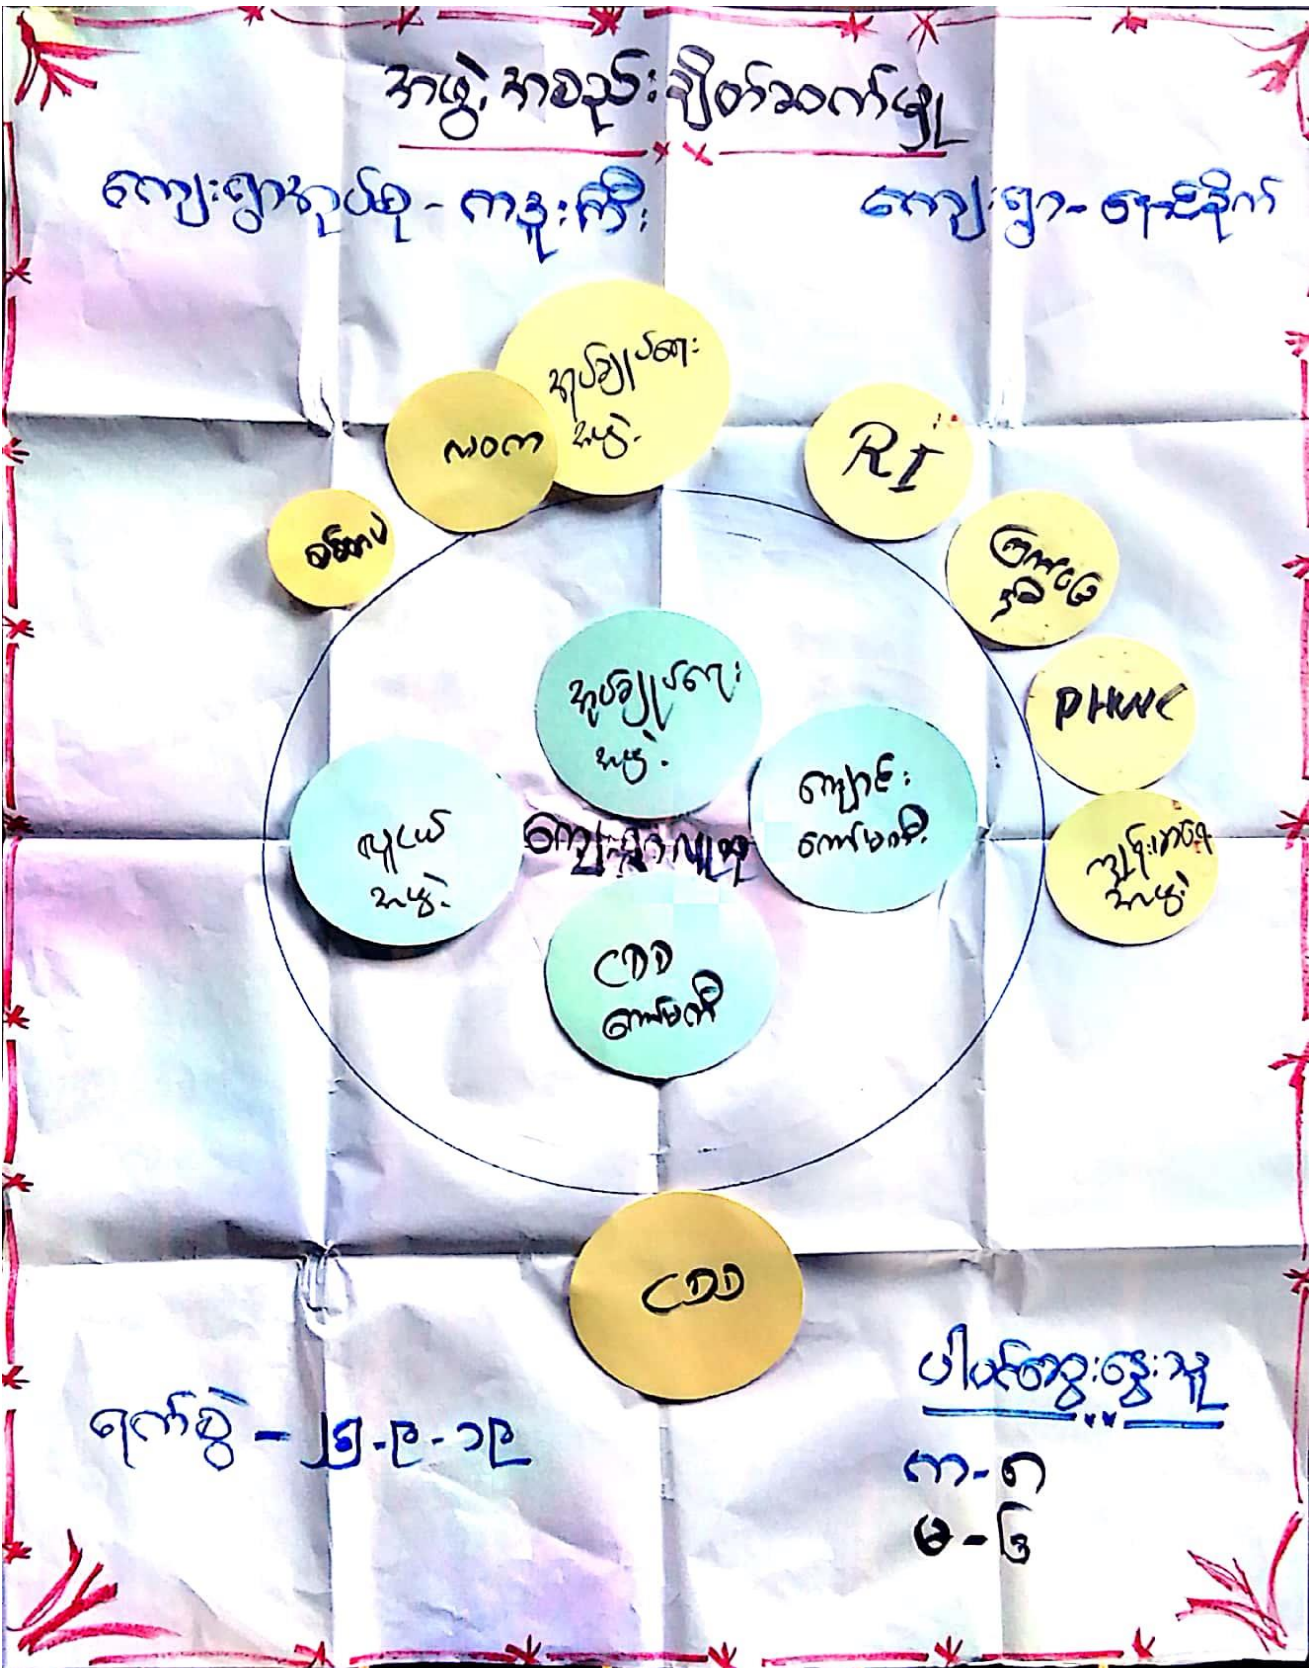 အဖွဲ့အစည်းချိတ်ဆက်မှု
ကျေးရွာအုပ်စု - ကဒူးကြီး
ကျေးရွာ -
အုပ်ချုပ်ရေး
အဖွဲ့
လဝက
RI
ကြက်ခြေ
နီ
PHWC
အုပ်ချုပ်ရေး
အဖွဲ့
ကျောင်း
ကော်မတီ
လူငယ်
အဖွဲ့
ကျေးရွာလူထု
ကျန်းမာရေး
အဖွဲ့
CDD
ကော်မတီ
CDD
ရက်စွဲ - ၂၅-၉-၁၉
ပါဝင်ဆွေးနွေးသူ
က - ၈
မ - ၆